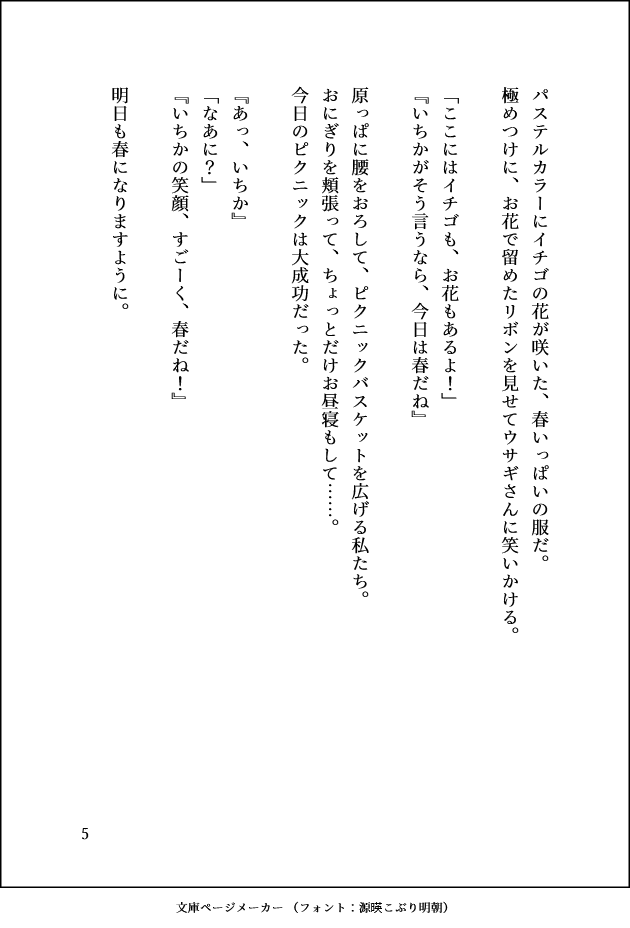 パステルカラーにイチゴの花が咲いた、春いっぱいの服だ。
極めつけに、お花で留めたリボンを見せてウサギさんに笑いかける。
「ここにはイチゴも、お花もあるよ！」
『いちかがそう言うなら、今日は春だね』
原っぱに腰をおろして、ピクニックバスケットを広げる私たち。
おにぎりを頬張って、ちょっとだけお昼寝もして……。
今日のピクニックは大成功だった。
『あっ、いちか』
「なあに？」
『いちかの笑顔、すごーく、春だね！』
明日も春になりますように。
5
文庫ページメーカー （フォント：源暎こぶり明朝）